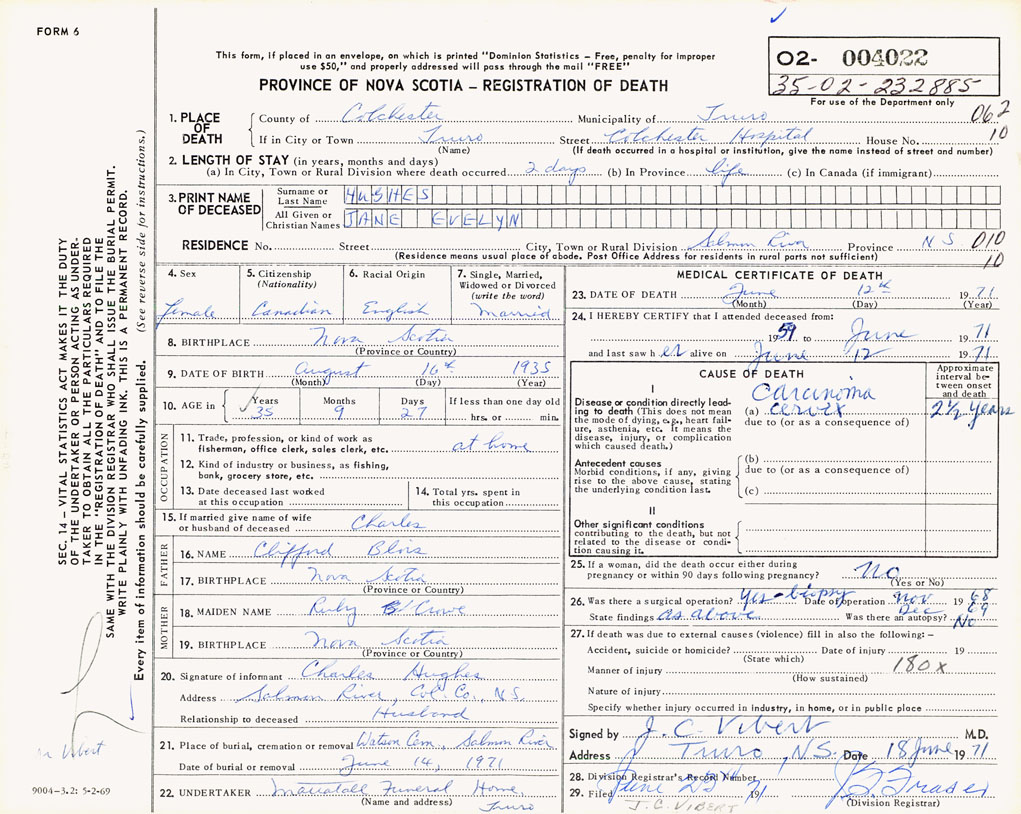 FORM 6
This form, if placed in an envelope, on which is printed "Dominion Statistics – Free, penalty for improper
use $50," and properly addressed will pass through the mail "FREE"
PROVINCE OF NOVA SCOTIA – REGISTRATION OF DEATH
02- 004022
35-02-232885
For use of the Department only
1. PLACE OF DEATH
County of Colchester Municipality of Truro 062
If in City or Town Truro Street Colchester Hospital House No. 10
(Name) (If death occurred in a hospital or institution, give the name instead of street and number)
2. LENGTH OF STAY (in years, months and days)
(a) In City, Town or Rural Division where death occurred 2 days (b) In Province life (c) In Canada (if immigrant)
3. PRINT NAME OF DECEASED
Surname or Last Name HUGHES
All Given or Christian Names JANE EVELYN
RESIDENCE No. Street City, Town or Rural Division Salmon River Province N S 010
(Residence means usual place of abode. Post Office Address for residents in rural parts not sufficient) 10
4. Sex
female
5. Citizenship
(Nationality)
Canadian
6. Racial Origin
English
7. Single, Married,
Widowed or Divorced
(write the word)
Married
8. BIRTHPLACE Nova Scotia
(Province or Country)
9. DATE OF BIRTH August 16th 1935
(Month) (Day) (Year)
10. AGE in Years Months Days If less than one day old
35 9 27 hrs. or min.
OCCUPATION
11. Trade, profession, or kind of work as
fisherman, office clerk, sales clerk, etc. at home
12. Kind of industry or business, as fishing,
bank, grocery store, etc.
13. Date deceased last worked
at this occupation
14. Total yrs. spent in
this occupation
15. If married give name of wife
or husband of deceased Charles
FATHER
16. NAME Clifford Blois
17. BIRTHPLACE Nova Scotia
(Province or Country)
MOTHER
18. MAIDEN NAME Ruby Crowe
19. BIRTHPLACE Nova Scotia
(Province or Country)
20. Signature of informant Charles Hughes
Address Salmon River, Col. Co., N.S.
Relationship to deceased Husband
21. Place of burial, cremation or removal Watson Cem., Salmon River
Date of burial or removal June 14, 1971
22. UNDERTAKER Mattatall Funeral Home,
(Name and address) Truro
MEDICAL CERTIFICATE OF DEATH
23. DATE OF DEATH June 12th 1971
(Month) (Day) (Year)
24. I HEREBY CERTIFY that I attended deceased from:
1959 to June 1971
and last saw her alive on June 12 1971
CAUSE OF DEATH
Approximate
interval be-
tween onset
and death
I
Disease or condition directly lead-
ing to death (This does not mean
the mode of dying, e.g., heart fail-
ure, asthenia, etc. It means the
disease, injury, or complication
which caused death.)
Carcinoma
(a) cervix 2½ years
due to (or as a consequence of)
Antecedent causes
Morbid conditions, if any, giving
rise to the above cause, stating
the underlying condition last.
(b)
due to (or as a consequence of)
(c)
II
Other significant conditions
contributing to the death, but not
related to the disease or condi-
tion causing it.
25. If a woman, did the death occur either during
pregnancy or within 90 days following pregnancy? No
(Yes or No)
26. Was there a surgical operation? Yes - biopsy Date of operation Nov 1968
Dec 69
State findings as above Was there an autopsy? No
27. If death was due to external causes (violence) fill in also the following: –
Accident, suicide or homicide? Date of injury 19
(State which)
Manner of injury 180x
(How sustained)
Nature of injury
Specify whether injury occurred in industry, in home, or in public place
Signed by J. C. Vibert M.D.
Address Truro, N.S. Date 18 June 1971
28. Division Registrar's Record Number
29. Filed June 25 1971
J.C. VIBERT
(Division Registrar)
SEC. 14 – VITAL STATISTICS ACT MAKES IT THE DUTY
OF THE UNDERTAKER OR PERSON ACTING AS UNDER-
TAKER TO OBTAIN ALL THE PARTICULARS REQUIRED
IN THE "REGISTRATION OF DEATH" AND TO FILE THE
SAME WITH THE DIVISION REGISTRAR WHO SHALL ISSUE THE BURIAL PERMIT.
WRITE PLAINLY WITH UNFADING INK. THIS IS A PERMANENT RECORD.
Every item of information should be carefully supplied. (See reverse side for instructions.)
Vibert
9004-3.2: 5-2-69